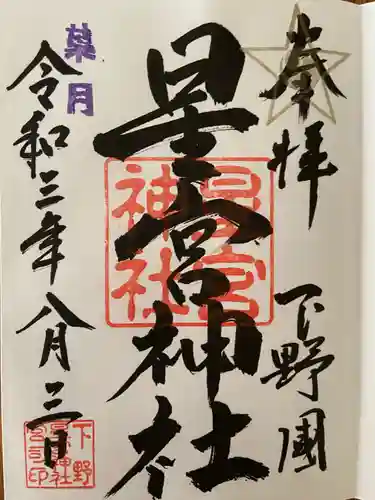 奉拝 下野國
星宮神社
星宮
神社
葉月
令和三年八月二日
下野
星宮神社
宮司印